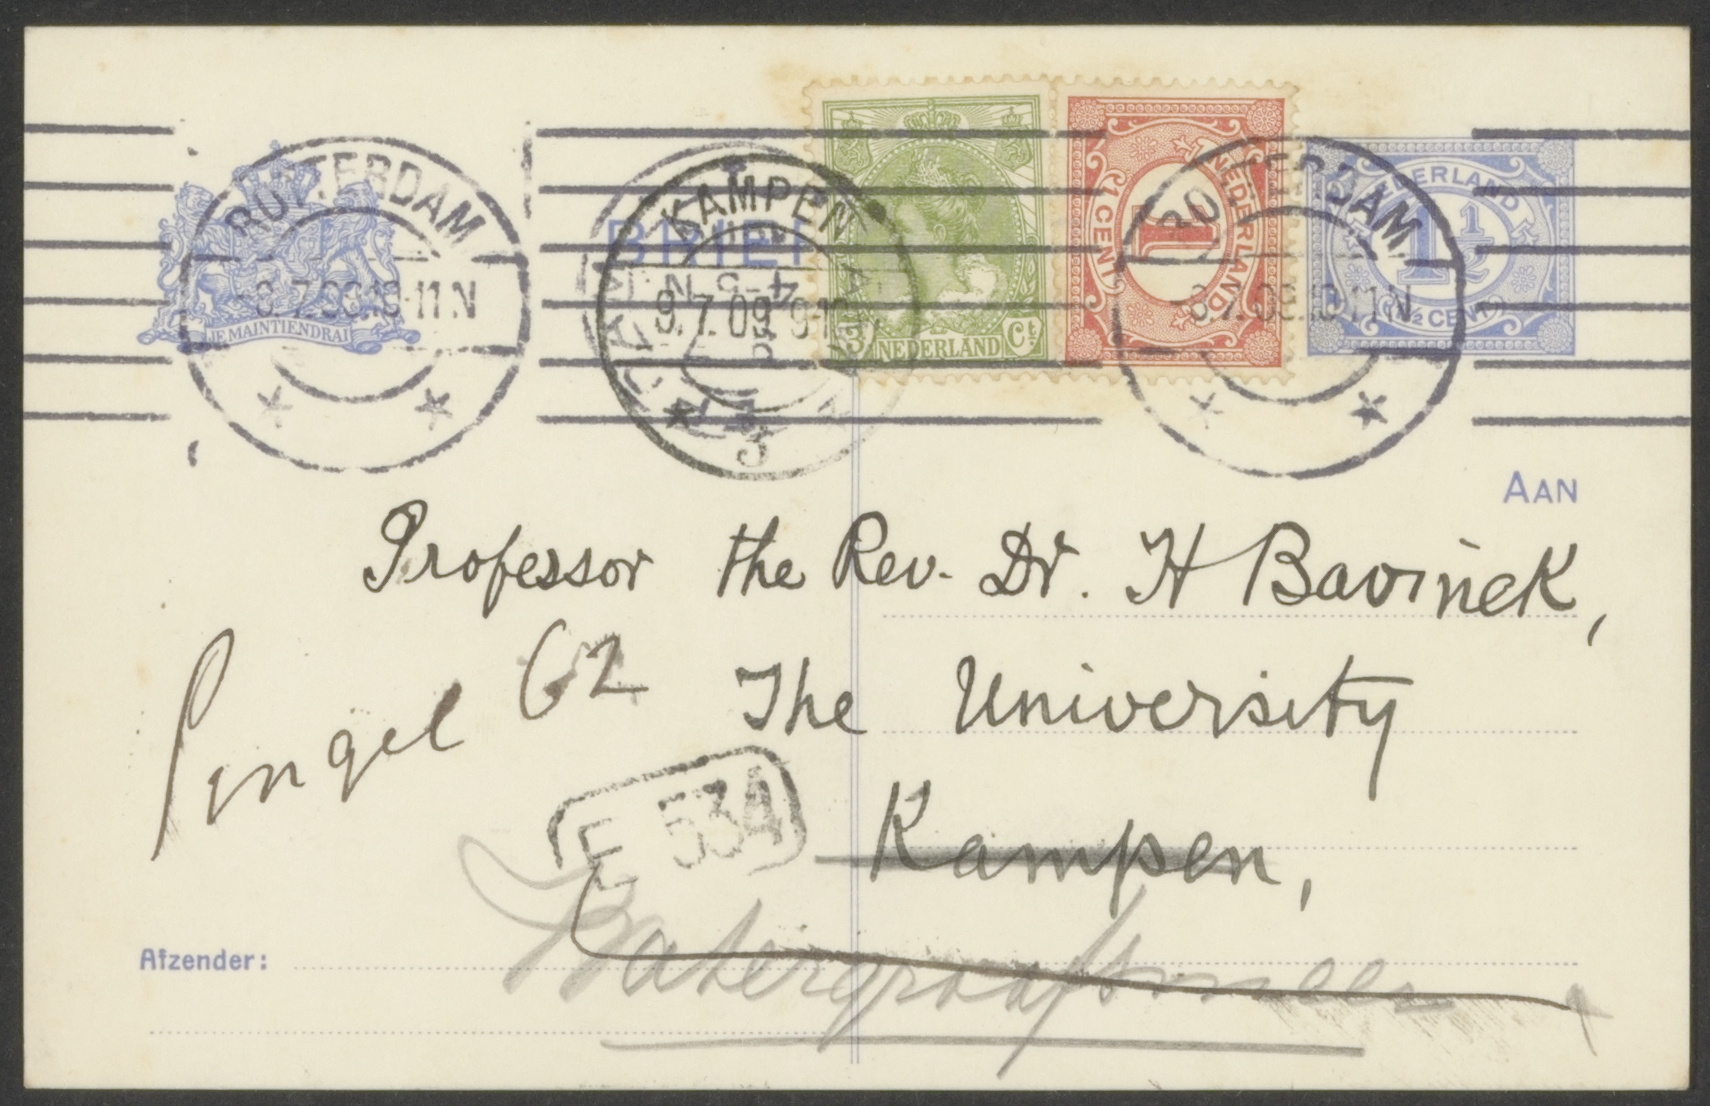 ROTTERDAM
-8.7.09.10-11N
JE MAINTIENDRAI
KAMPEN
9.7.09 9-12
4-5 N
BRIEF
3 Ct
NEDERLAND
NEDERLAND
1 CENT
1
ROTTERDAM
-8.7.09.10-11N
NEDERLAND
1½
1½ CENT
AAN
Professor the Rev. Dr. H Bavinck,
Singel 62
The University
E 534
Kampen,
Watergraafsmeer
Afzender: